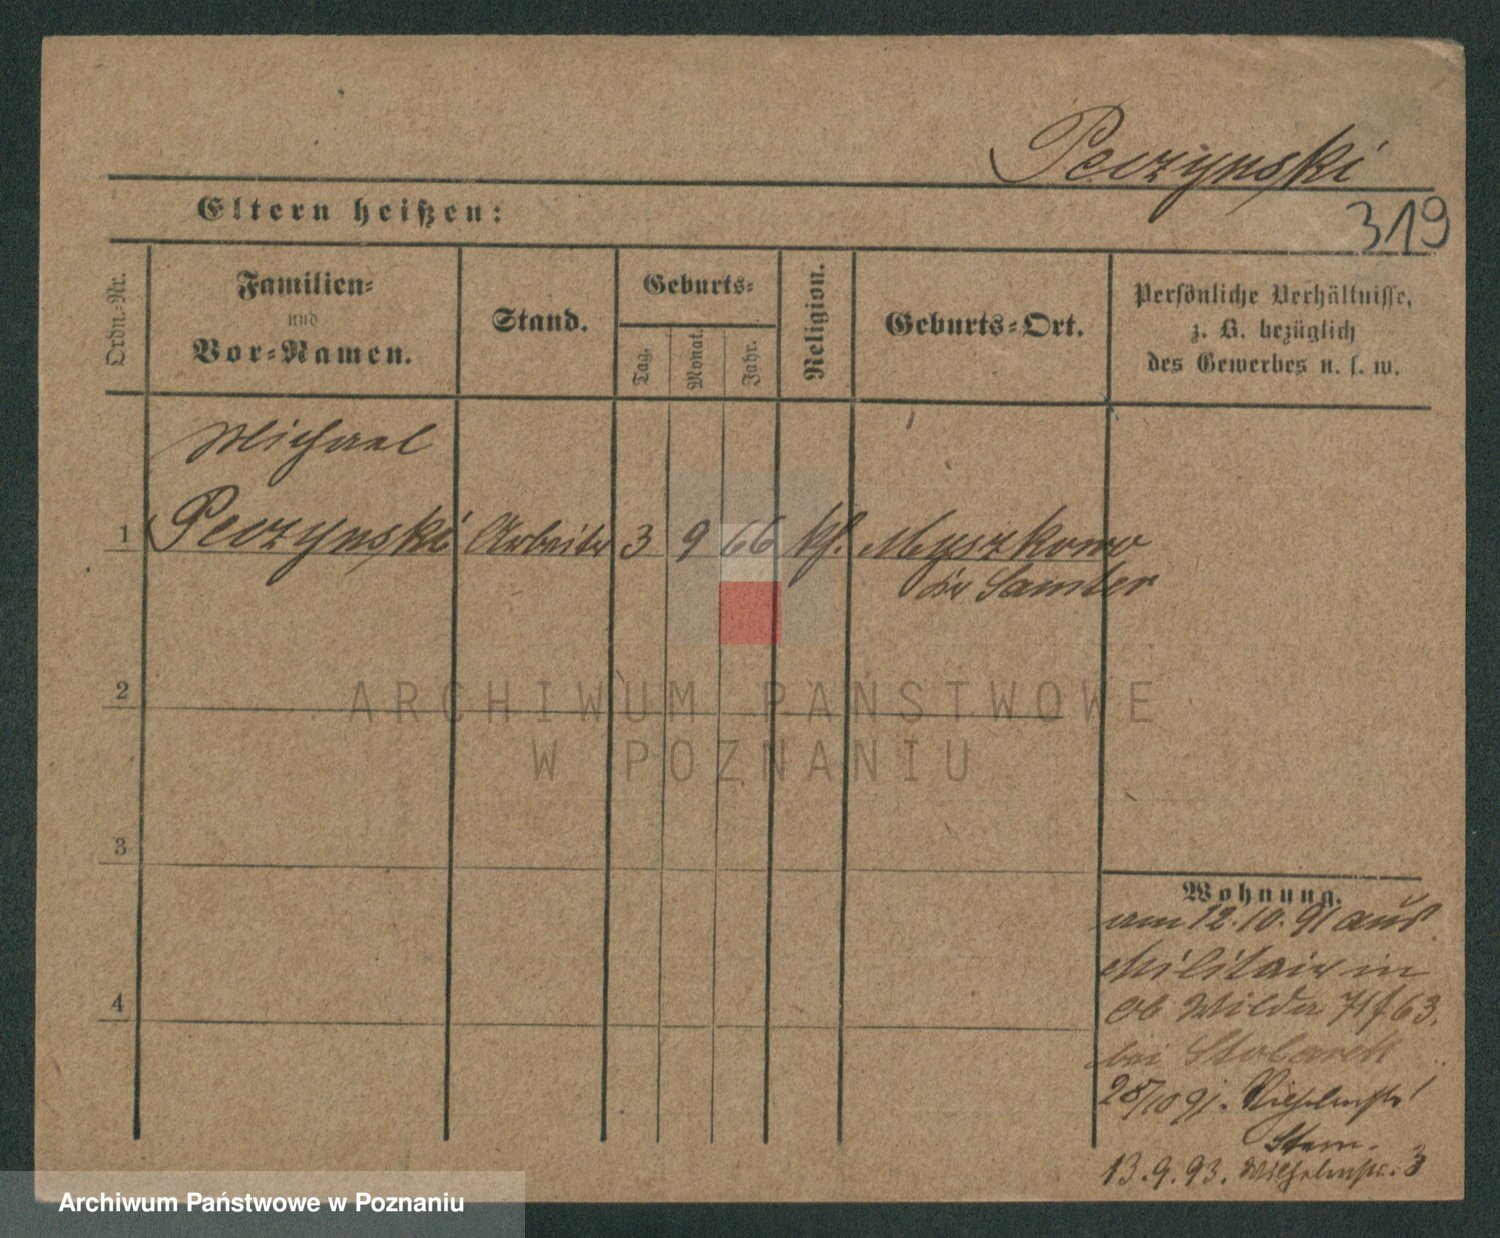 Peczynski
319
Eltern heißen:
Ordn.-Nr.
Familien-
und
Vor-Namen.
Stand.
Geburts-
Tag.
Monat.
Jahr.
Religion.
Geburts-Ort.
Persönliche Verhältnisse,
z. B. bezüglich
des Gewerbes u. s. w.
Michael
1 Peczynski Arbeiter 3 9 66 kf. Myszkowo
Kr Samter
2
3
4
Wohnung.
am 12.10.91 aus
Militair in
Ob Wilda 71/63.
bei Stolarek
28/10 91.
13.9.93. Wilhelmstr. 3
ARCHIWUM PAŃSTWOWE
W POZNANIU
Archiwum Państwowe w Poznaniu